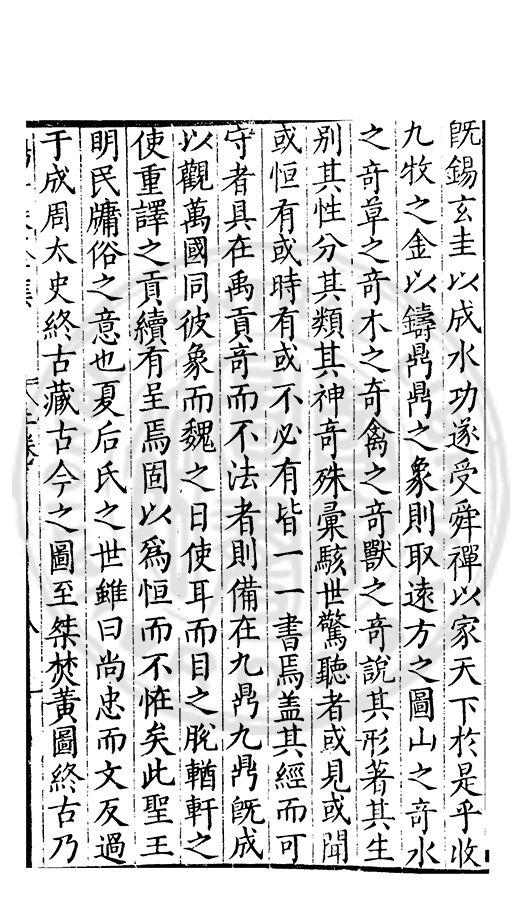 既錫玄圭以成水功遂受舜禪以家天下於是乎收
九牧之金以鑄鼎鼎之象則取遠方之圖山之奇水
之奇草之奇木之奇禽之奇獸之奇說其形著其生
别其性分其類其神奇殊彚駭世驚聽者或見或聞
或恒有或時有或不必有皆一一書焉盖其經而可
守者具在禹貢奇而不法者則備在九鼎九鼎旣成
以觀萬國同彼象而魏之日使耳而目之脫輶軒之
使重譯之貢續有呈焉固以爲恒而不恠矣此聖王
明民牗俗之意也夏后氏之世雖曰尚忠而文反過
于成周太史終古藏古今之圖至桀焚黃圖終古乃